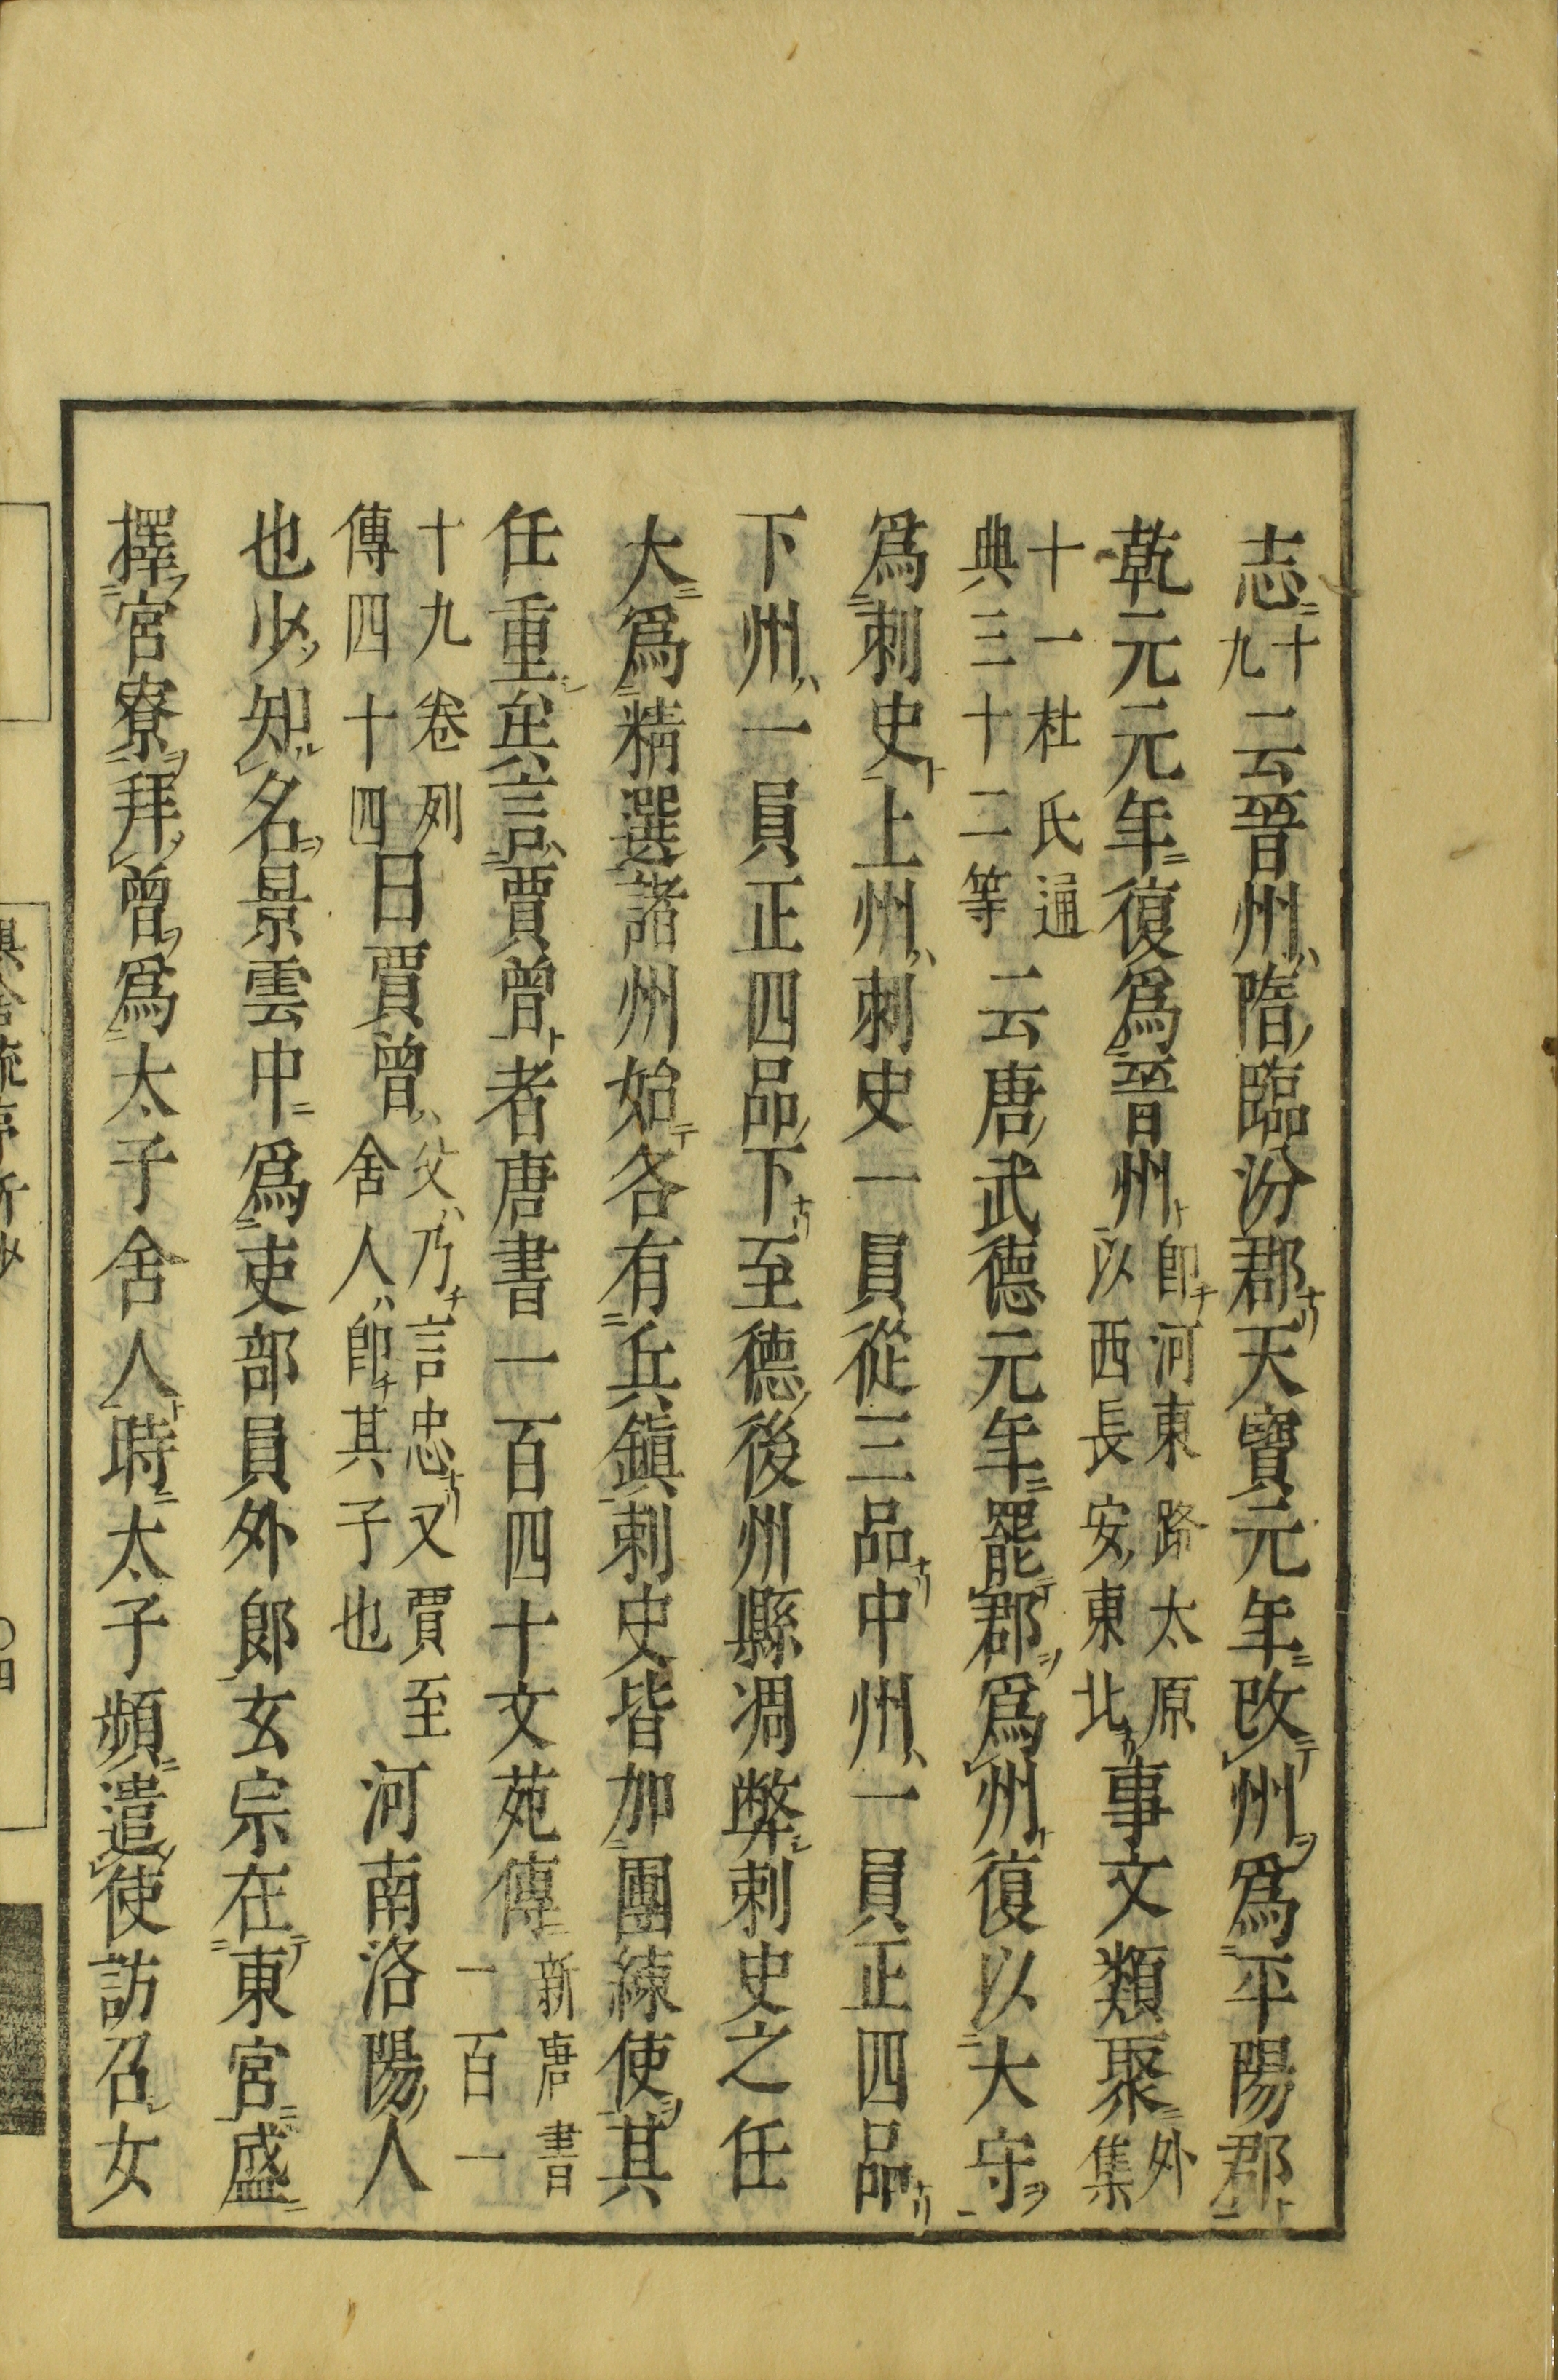 志十九云晉州隋臨汾郡天寶元年改州爲平陽郡
乾元元年復爲晉州即河東路太原以西長安東北事文類聚外集
十一杜氏通典三十二等云唐武德元年罷郡爲州復以大守
爲刺史上州刺史一員從三品中州一員正四品
下州一員正四品下至德後州縣凋弊刺史之任
大爲精選諸州始各有兵鎭刺史皆加團練使其
任重矣言賈曾者唐書一百四十文苑傳新唐書一百一
十九卷列傳四十四曰賈曾父乃言忠又賈至舍人即其子也河南洛陽人
也少知名景雲中爲吏部員外郎玄宗在東宮盛
擇宮寮拜曾爲太子舍人時太子頻遣使訪召女